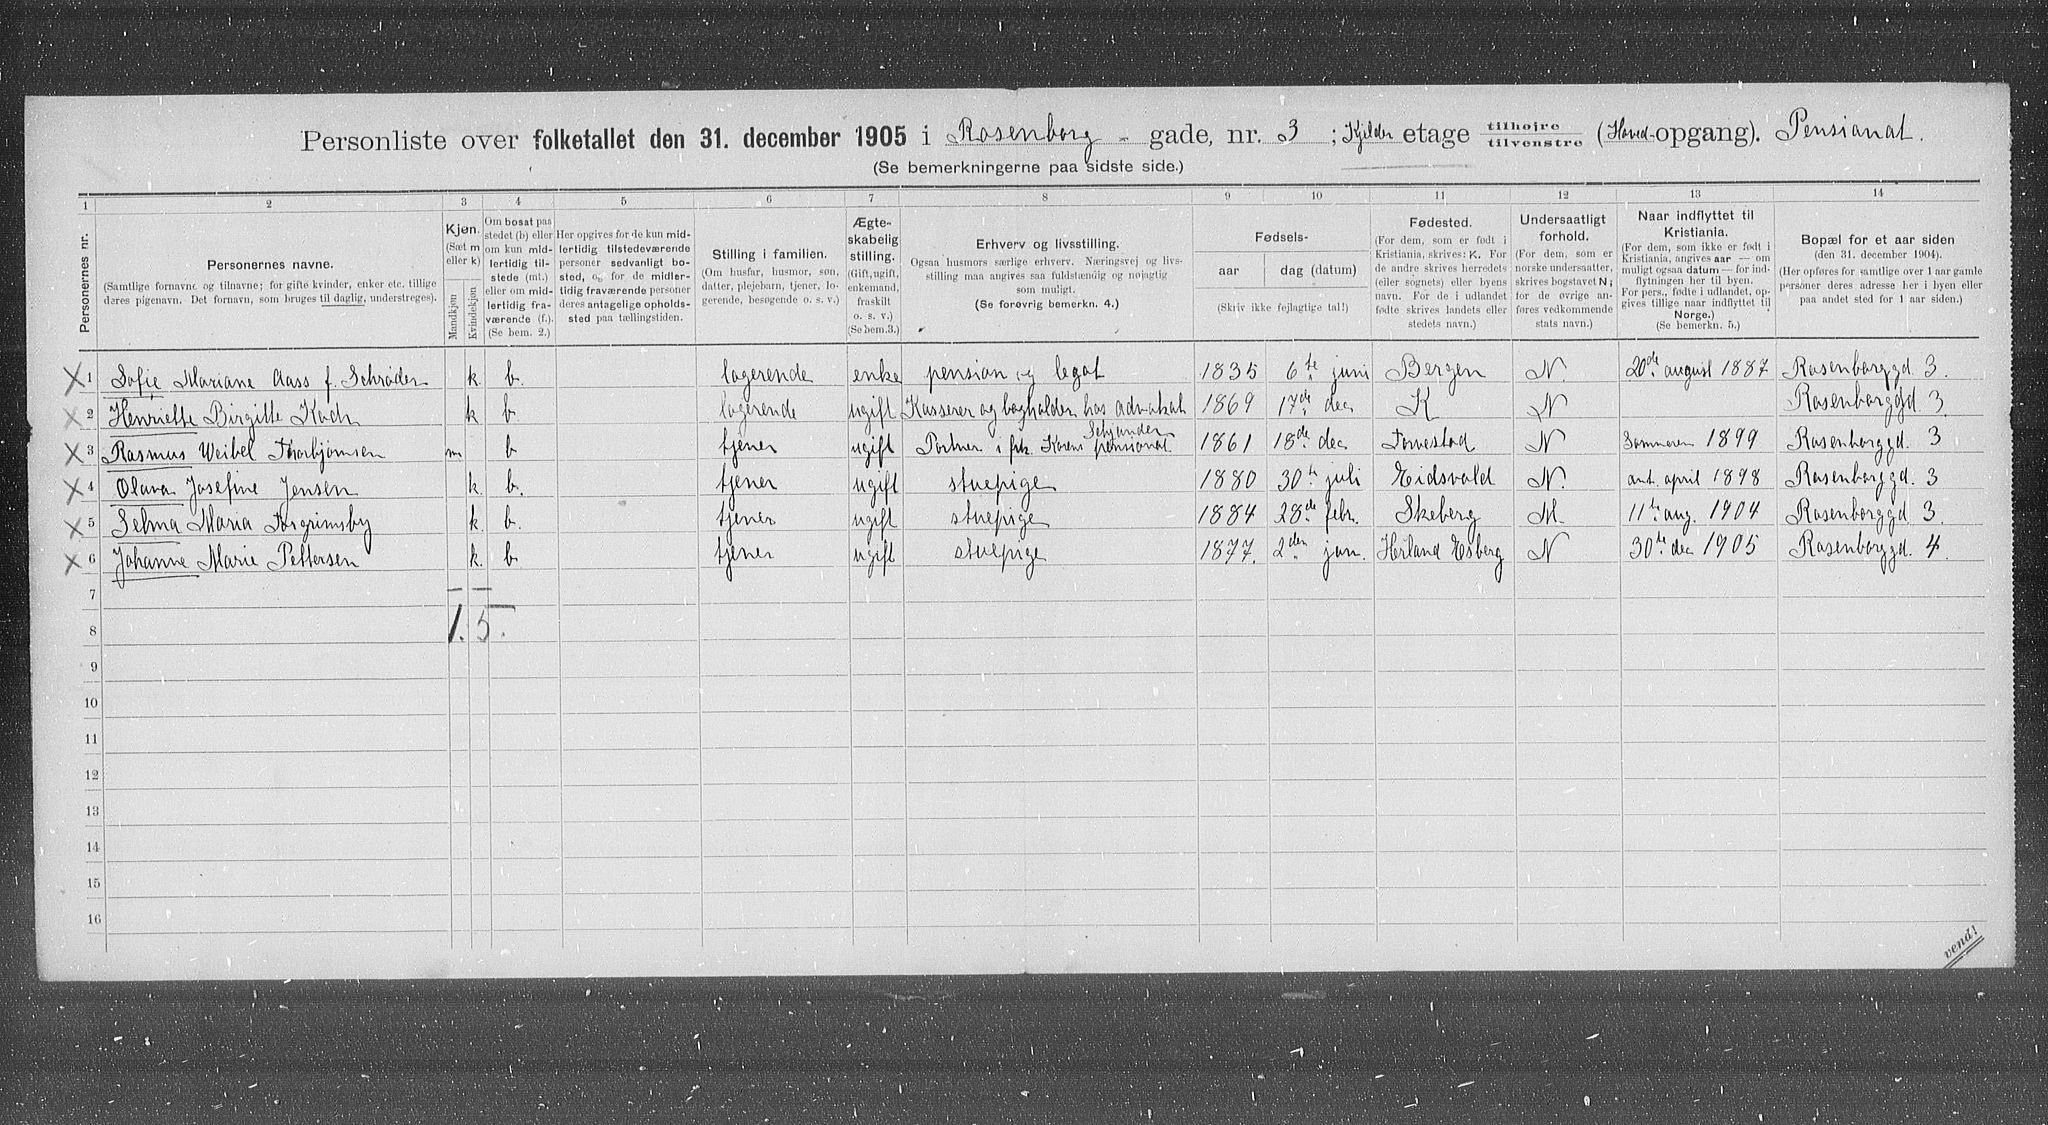 Personliste over folketallet den 31. december 1905 i Rosenborg - gade, nr. 3 ; Kjelder etage tilhøjre tilvenstre (Hoved-opgang). Pensionat.
(Se bemerkningerne paa sidste side.)
1 2 3 4 5 6 7 8 9 10 11 12 13 14
Personernes nr.
Personernes navne.
(Samtlige fornavne og tilnavne; for gifte kvinder, enker etc. tillige
deres pigenavn. Det fornavn, som bruges til daglig, understreges).
Kjøn.
(Sæt m
eller k)
Mandkjøn
Kvindekjøn
Om bosat paa
stedet (b) eller
om kun mid-
lertidig til-
stede (mt.)
eller om mid-
lertidig fra-
værende (f.).
(Se bem. 2.)
Her opgives for de kun mid-
lertidig tilstedeværende
personer sedvanlig bo-
sted, og for de midler-
tidig fraværende personer
deres antagelige opholds-
sted paa tællingstiden.
Stilling i familien.
(Om husfar, husmor, søn,
datter, plejebarn, tjener, lo-
gerende, besøgende o. s. v.)
Ægte-
skabelig
stilling.
(Gift, ugift,
enkemand,
fraskilt
o. s. v.)
(Se bem.3.)
Erhverv og livsstilling.
Ogsaa husmors særlige erhverv. Næringsvej og livs-
stilling maa angives saa fuldstændig og nøjagtig
som muligt.
(Se forøvrig bemerkn. 4.)
Fødsels-
aar dag (datum)
(Skriv ikke fejlagtige tal!)
Fødested.
(For dem, som er født i
Kristiania, skrives: K. For
de andre skrives herredets
(eller sognets) eller byens
navn. For de i udlandet
fødte skrives landets eller
stedets navn.)
Undersaatligt
forhold.
(For dem, som er
norske undersaatter,
skrives bogstavet N;
for de øvrige an-
føres vedkommende
stats navn.)
Naar indflyttet til
Kristiania.
(For dem, som ikke er født i
Kristiania, angives aar — om
muligt ogsaa datum — for ind-
flytningen her til byen.
For pers., fødte i udlandet, op-
gives tillige naar indflyttet til
Norge.)
(Se bemerkn. 5.)
Bopæl for et aar siden
(den 31. december 1904).
(Her opføres for samtlige over 1 aar gamle
personer deres adresse her i byen eller
paa andet sted for 1 aar siden.)
X 1 Sofie Mariane Aass f. Schrøder k. b. logerende enke pension og legat 1835 6te juni Bergen N. 20de august 1887 Rosenborggd 3.
X 2 Henriette Birgitte Koch k b logerende ugift Kasserer og bogholder hos advokat 1869 17de dec K N Rosenborggd. 3.
X 3 Rasmus Weibel Thorbjørnsen m b tjener ugift Portner i frk. Karens Schjander pensionat 1861 18de dec N Sommeren 1899 Rosenborggd. 3
X 4 Olava Josefine Jensen k. b. tjener ugift stuepige 1880 30te juli Eidsvold N. ant. april 1898 Rosenborggd. 3
X 5 Selma Maria Torgrimsby k. b. tjener ugift stuepige 1884 28de febr. Skeberg N. 11te aug. 1904 Rosenborggd 3.
X 6 Johanne Marie Pettersen k. b. tjener ugift stuepige 1877. 2den jan. N 30te dec 1905 Rosenborggd. 4.
7
8 1. 5.
9
10
11
12
13
14
15
16
vend!